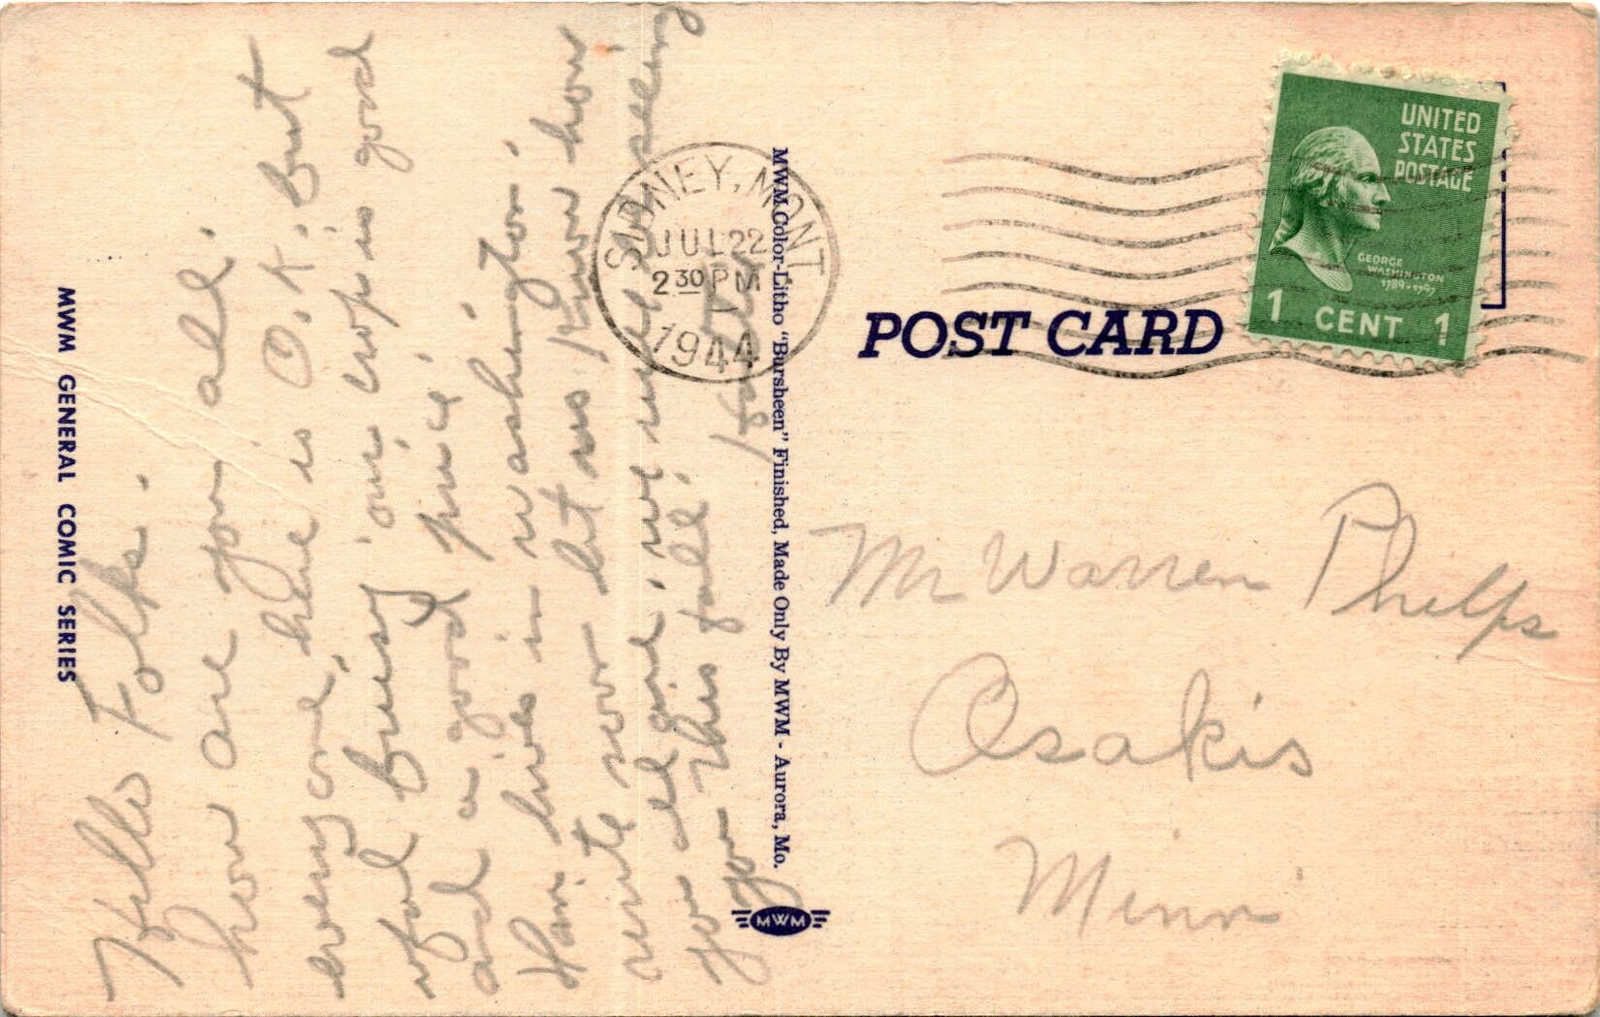 Hello Folks.
how are you all.
everyone here is O.K. but
busy our crop is good
and a good price.
lives in washington.
write
let us know how
you all are,
seeing
you this fall.
MWM GENERAL COMIC SERIES
MWM Color-Litho "Bursheen" Finished, Made Only By MWM - Aurora, Mo.
MWM
SIDNEY, MONT
JUL 22
2 30 PM
1944
POST CARD
UNITED
STATES
POSTAGE
GEORGE
WASHINGTON
1789-1797
1 CENT 1
Mr Warren Phelps
Osakis
Minn